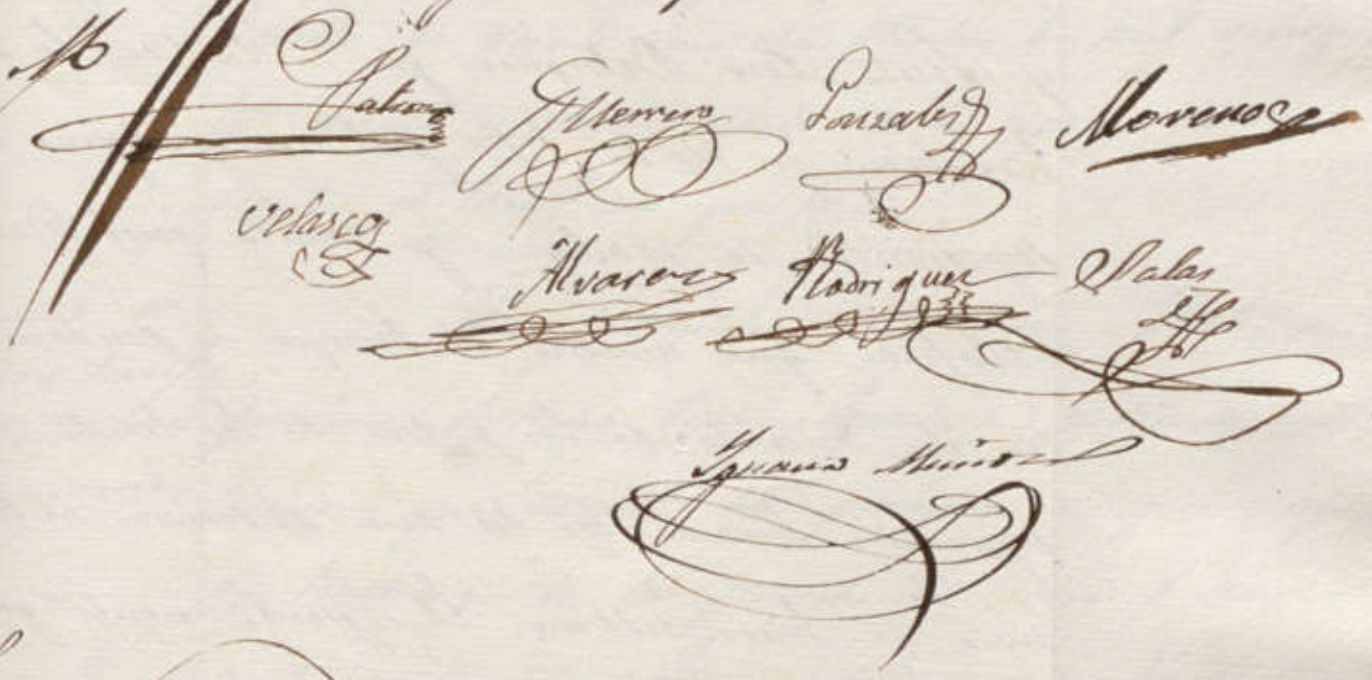 Guerrero Gonzalez Moreno
Velasco
Alvarez Rodriguez Salas
Ygnacio Muñoz